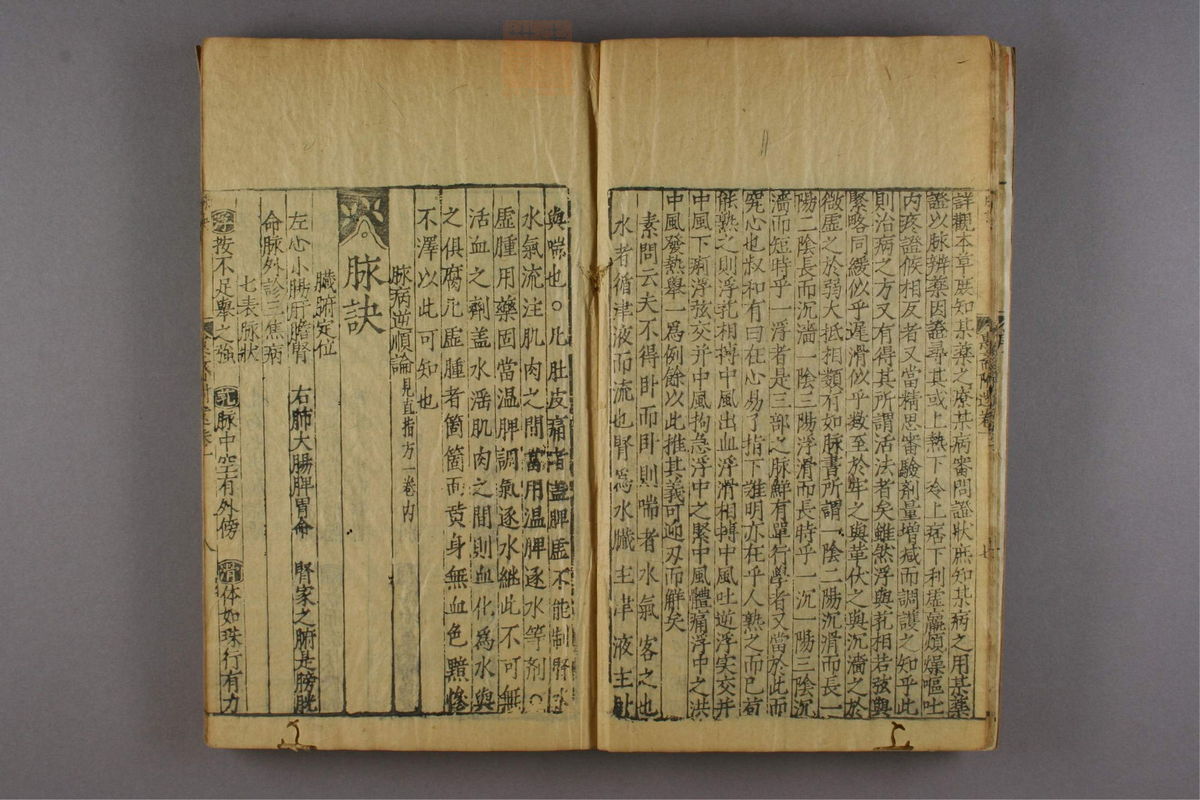 詳觀本草旣知某藥之療某病審問證狀旣知某病之用某藥
證以脉辨藥因證尋其或上熱下冷上痞下利虚羸煩燥嘔吐
内疼證候相反者又當精思審驗劑量增减而調護之知乎此
則治病之方又有得其所謂活法者矣雖然浮與芤相若弦與
緊略同緩似乎遲滑似乎數至於牢之與革伏之與沉濇之於
微虚之於弱大抵相類有如脉書所謂一隂二陽沉滑而長一
陽二隂長而沉濇一隂三陽浮滑而長時乎一沉一陽三隂沉
濇而短時乎一浮者是三部之脉鮮有單行學者又當於此而
究心也叔和有曰在心易了指下難明亦在乎人熟之而已苟
能熟之則浮芤相搏中風出血浮滑相搏中風吐逆浮实交并
中風下痢浮弦交并中風拘急浮中之緊中風體痛浮中之洪
中風發熱舉一爲例餘以此推其義可迎刃而解矣
素問云夫不得卧而卧則喘者水氣客之也
水者循津液而流也腎爲水臟主津液主卧
與喘也。凡肚皮痛者盖脾虚不能制腎水
水氣流注肌肉之間當用温脾逐水等剤。
虚腫用藥固當温脾調氣逐水継此不可無
活血之劑盖水滛肌肉之間則血化爲水與
之俱腐凢虚腫者箇箇面黄身無血色黯惨
不澤以此可知也
脉病逆順論見直指方一卷内
脉訣
臓腑定位
左心小腸肝膽腎 右肺大腸脾胃命 腎家之腑是膀胱
命脉外診三焦病
七表脉状
浮按不足舉之強 芤脉中空有外傍 滑体如珠行有力